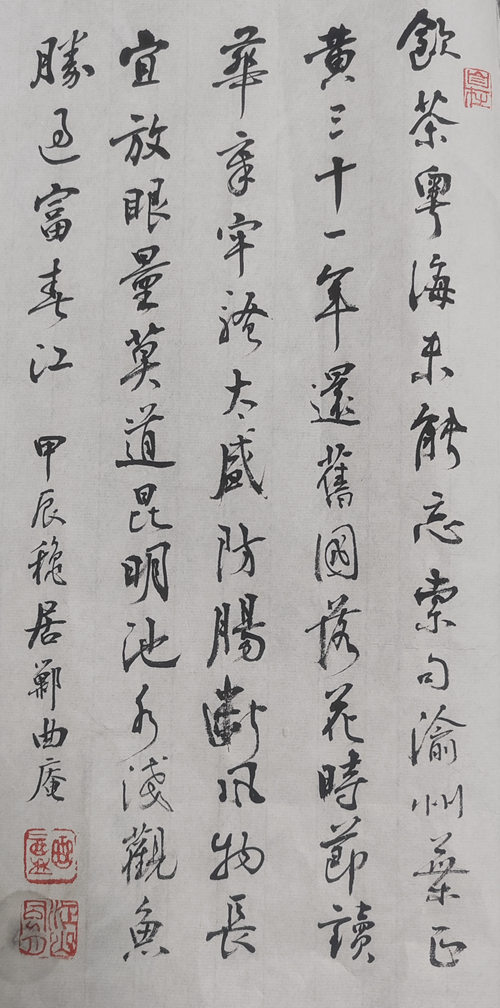 飲茶粵海未能忘索句渝州葉正
黄三十一年還舊國落花時節讀
華章牢騷太盛防腸斷風物長
宜放眼量莫道昆明池水淺觀魚
勝過富春江 甲辰穐居鄭曲庵